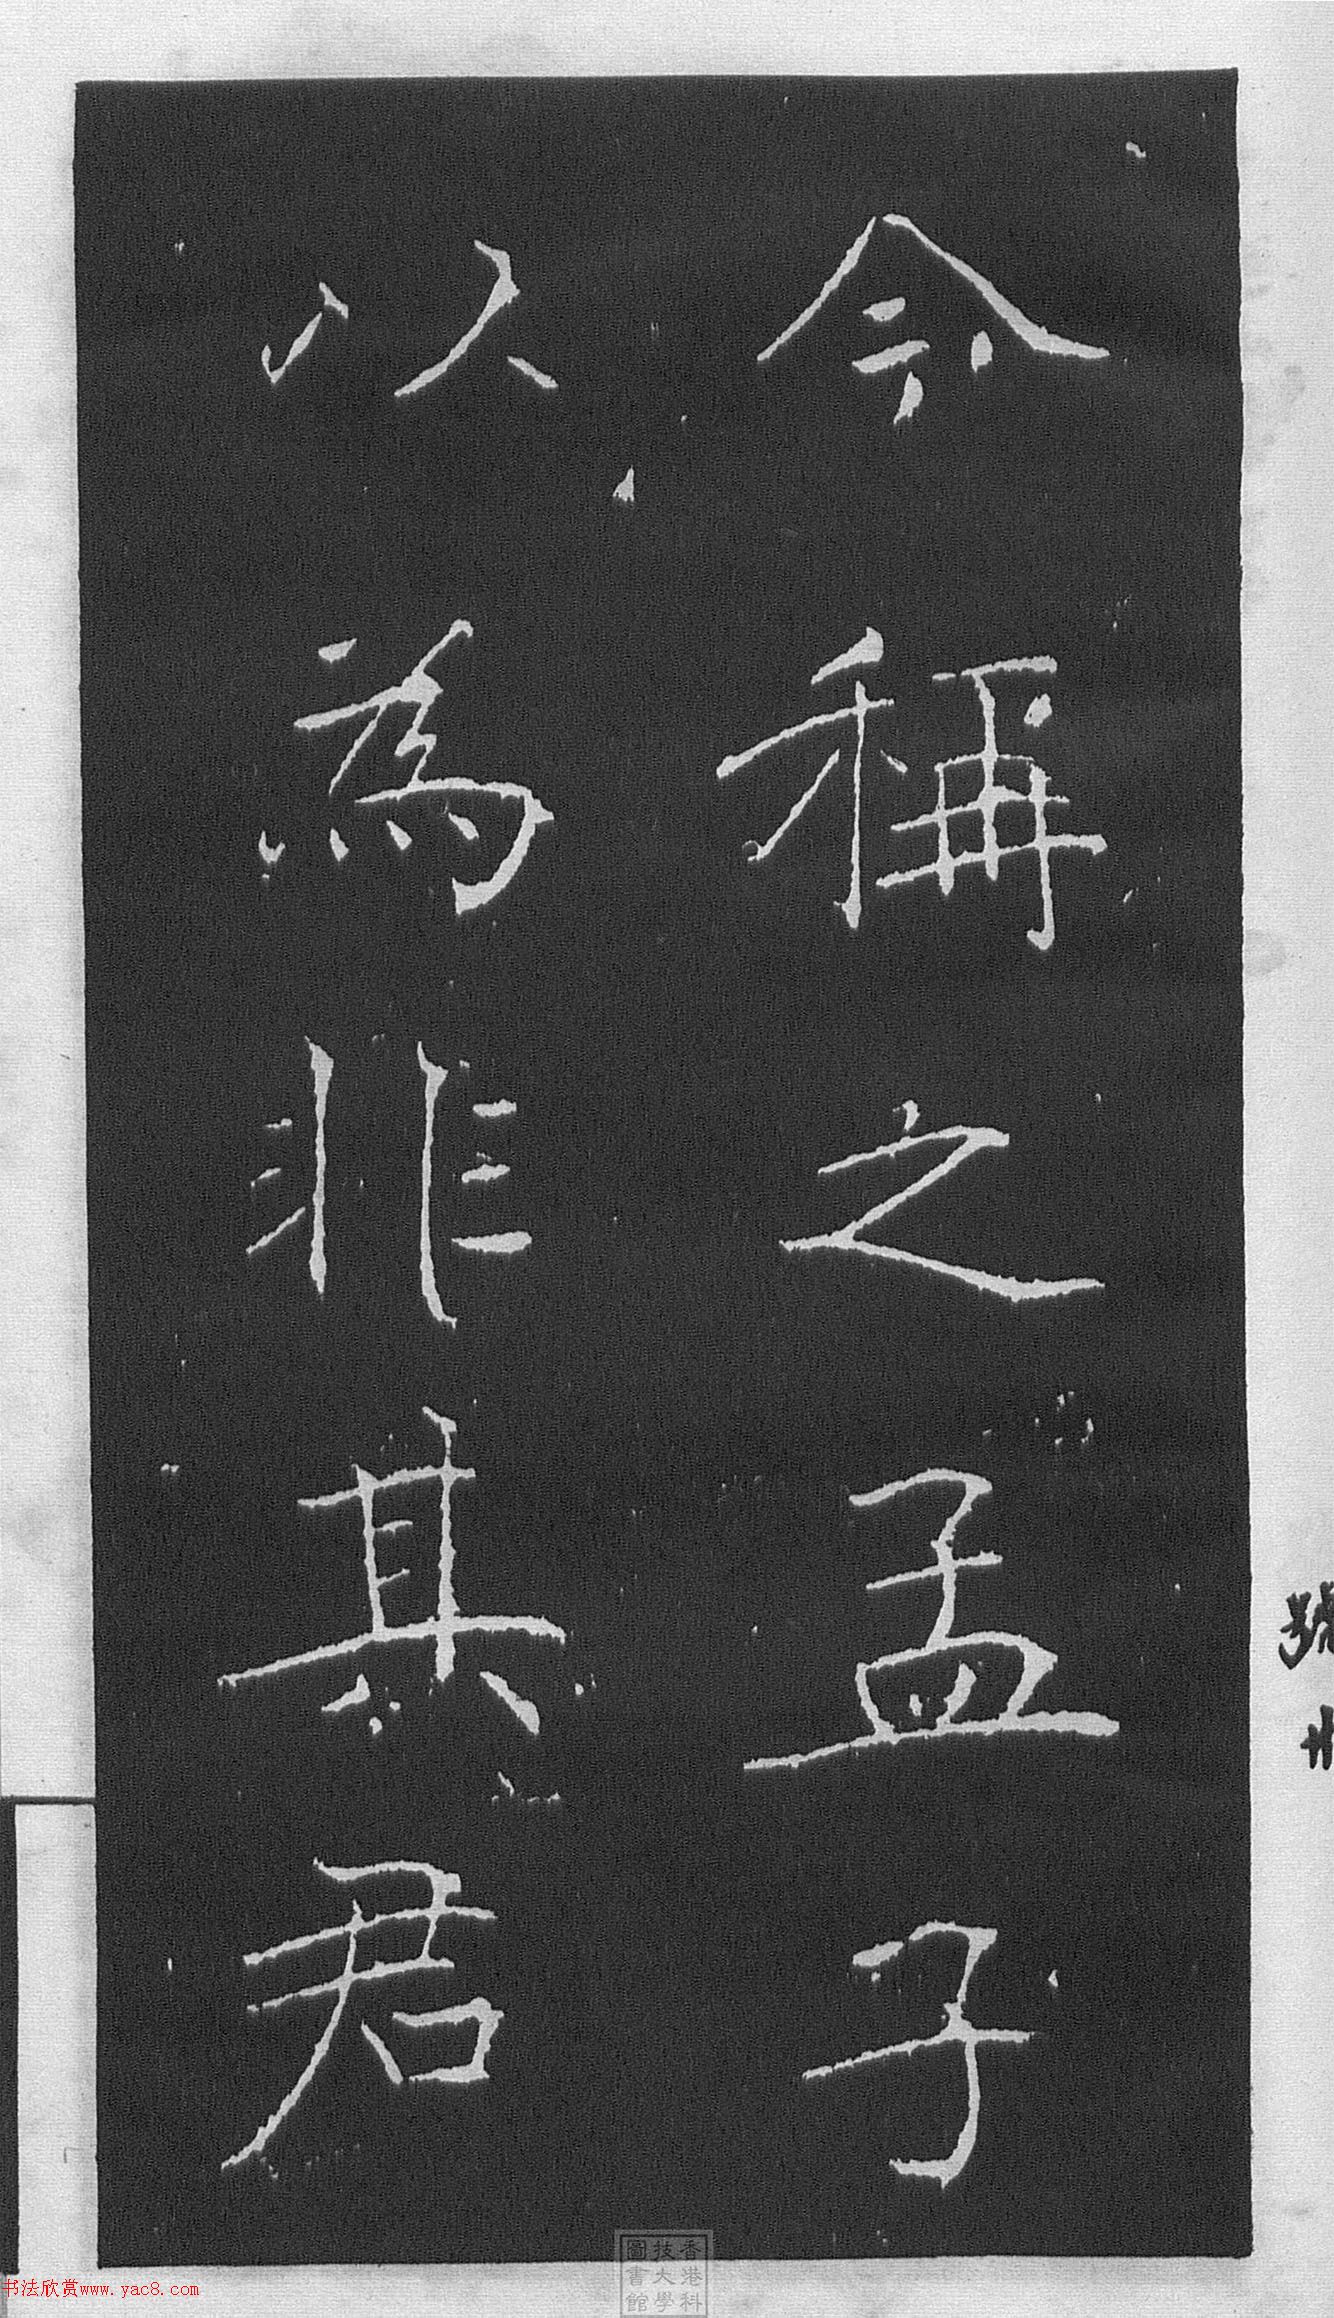 今稱之孟子
以為非其君
香港科
技大學
圖書館
书法欣赏www.yac8.com